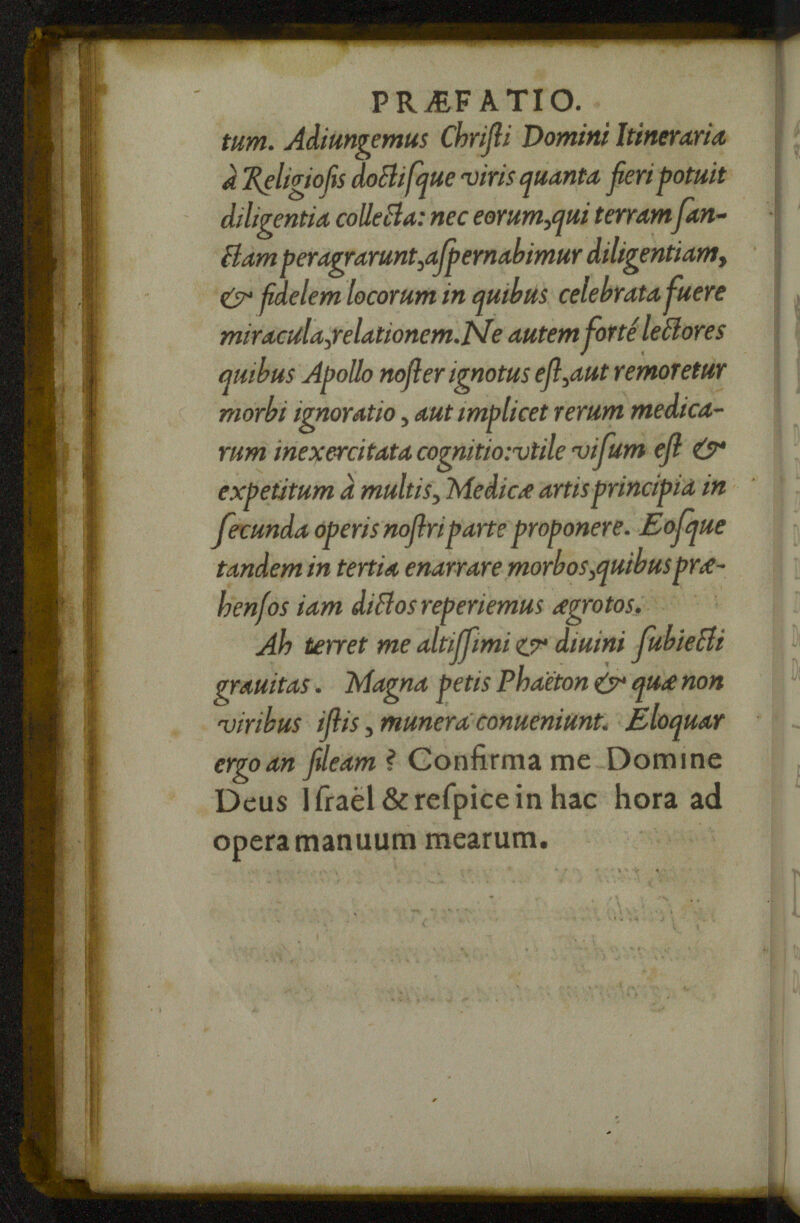 PRÆFATIO.
tum. Adiungemus Chriſti Domini Itineraria
à Religioſis doctiſque viris quanta fieri potuit
diligentia collecta: nec eorum,qui terram ſan-
ctam peragrarunt,aſpernabimur diligentiam,
& fidelem locorum in quibus celebrata fuere
miracula,relationem.Ne autem fortè lectores
quibus Apollo noſter ignotus eſt,aut remoretur
morbi ignoratio, aut implicet rerum medica-
rum inexercitata cognitio:vtile viſum eſt &
expetitum à multis, Medicæ artis principia in
ſecunda operis noſtri parte proponere. Eoſque
tandem in tertia enarrare morbos,quibus præ-
henſos iam dictos reperiemus ægrotos.
Ah terret me altiſſimi & diuini ſubiecti
grauitas. Magna petis Phaëton & quæ non
viribus iſtis, munera conueniunt. Eloquar
ergo an ſileam ? Confirma me Domine
Deus Iſraël & reſpice in hac hora ad
opera manuum mearum.